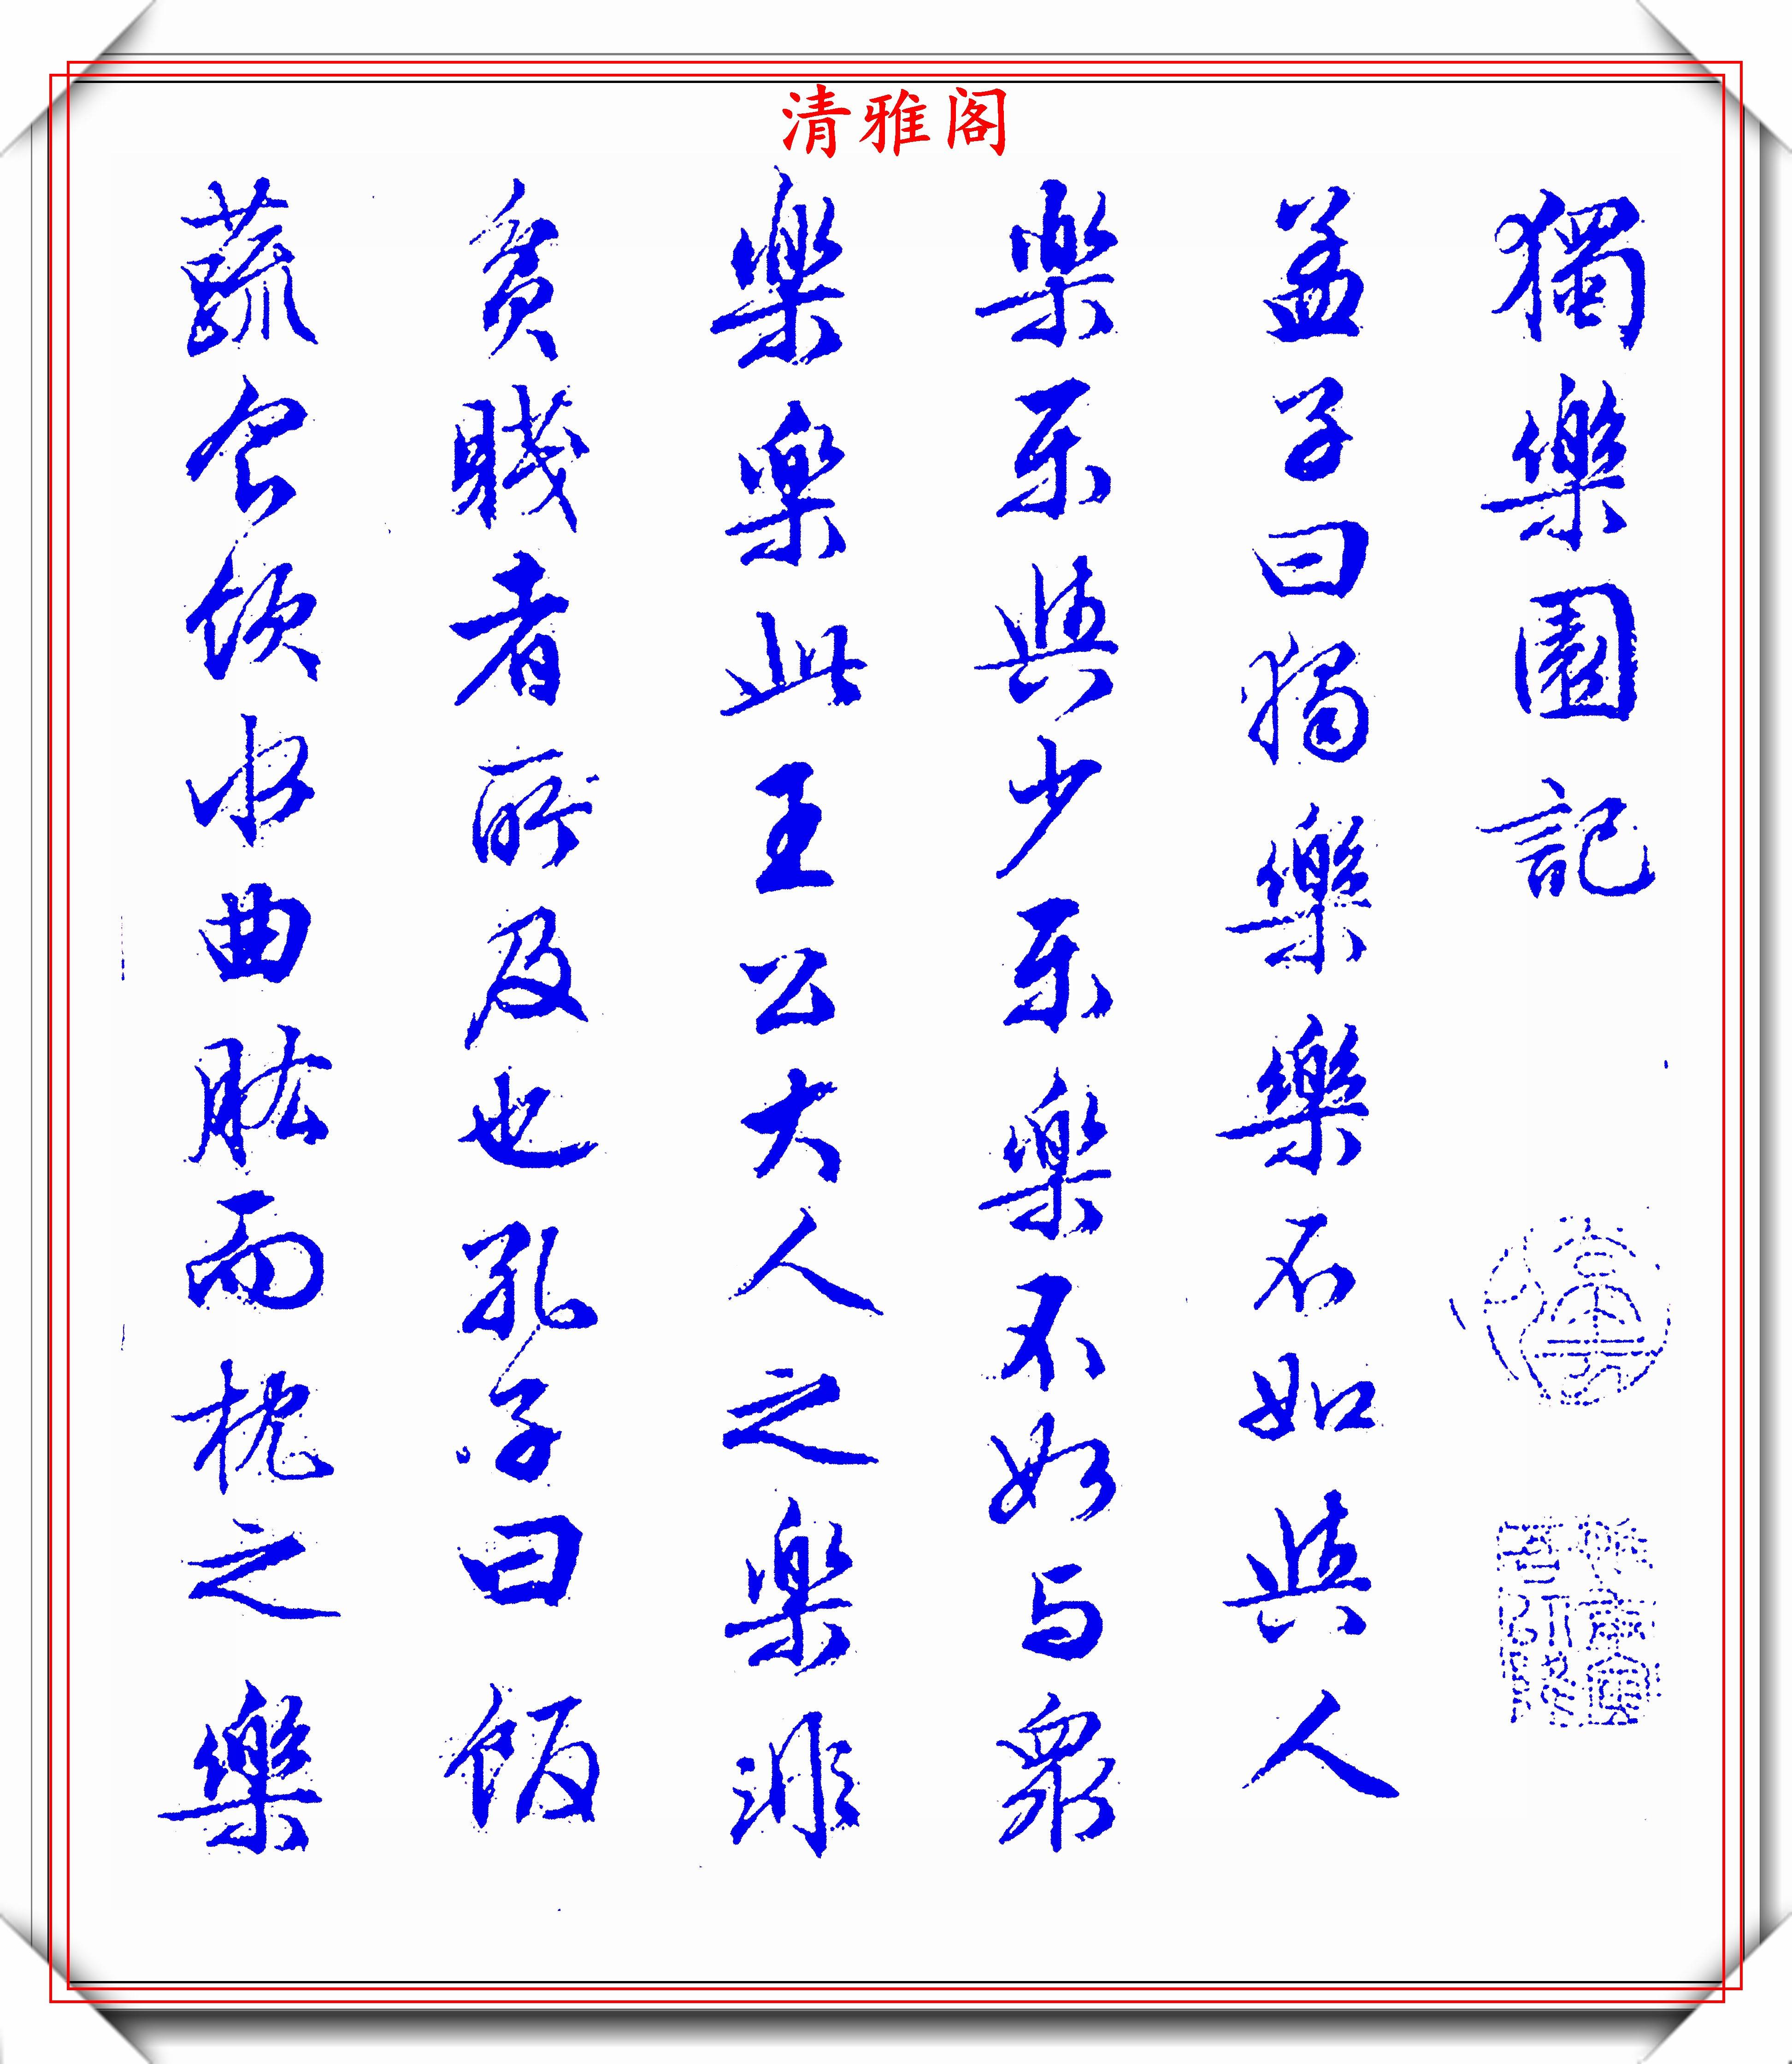 清雅阁
獨樂園記
孟子曰獨樂樂不如與人
樂乐與少乐樂不如与衆
樂樂此王公大人之樂非
貧賤者所及也孔子曰飯
蔬食飲水曲肱而枕之樂